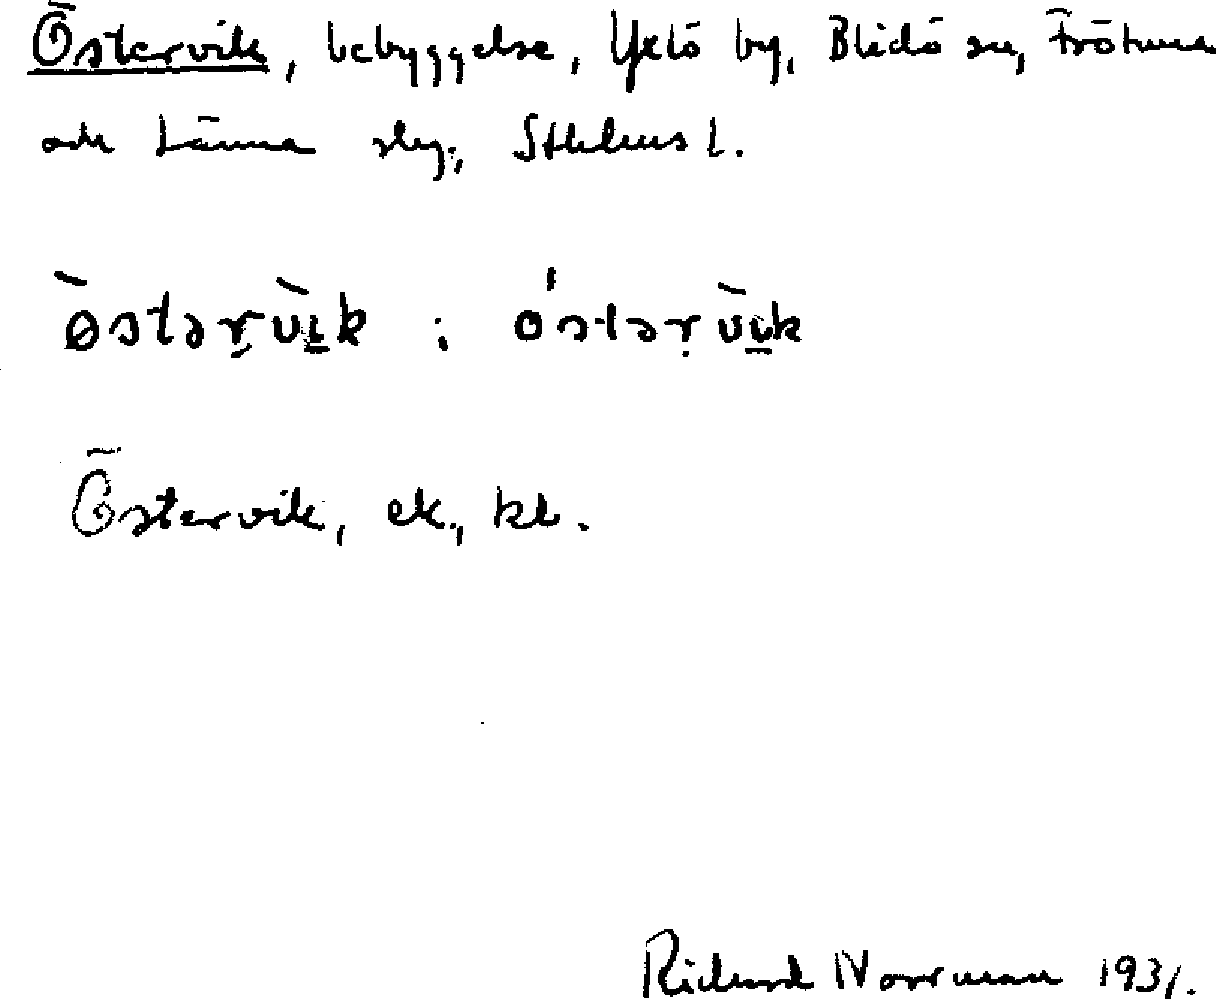 Östervik, bebyggelse, Yxlö by, Blidö sn, Frötuna
och Länna skg., Sthlms l.
ə̀stərvìk : ǿstərvìk
Östervik, ek., kb.
Richard Norrman 1931.